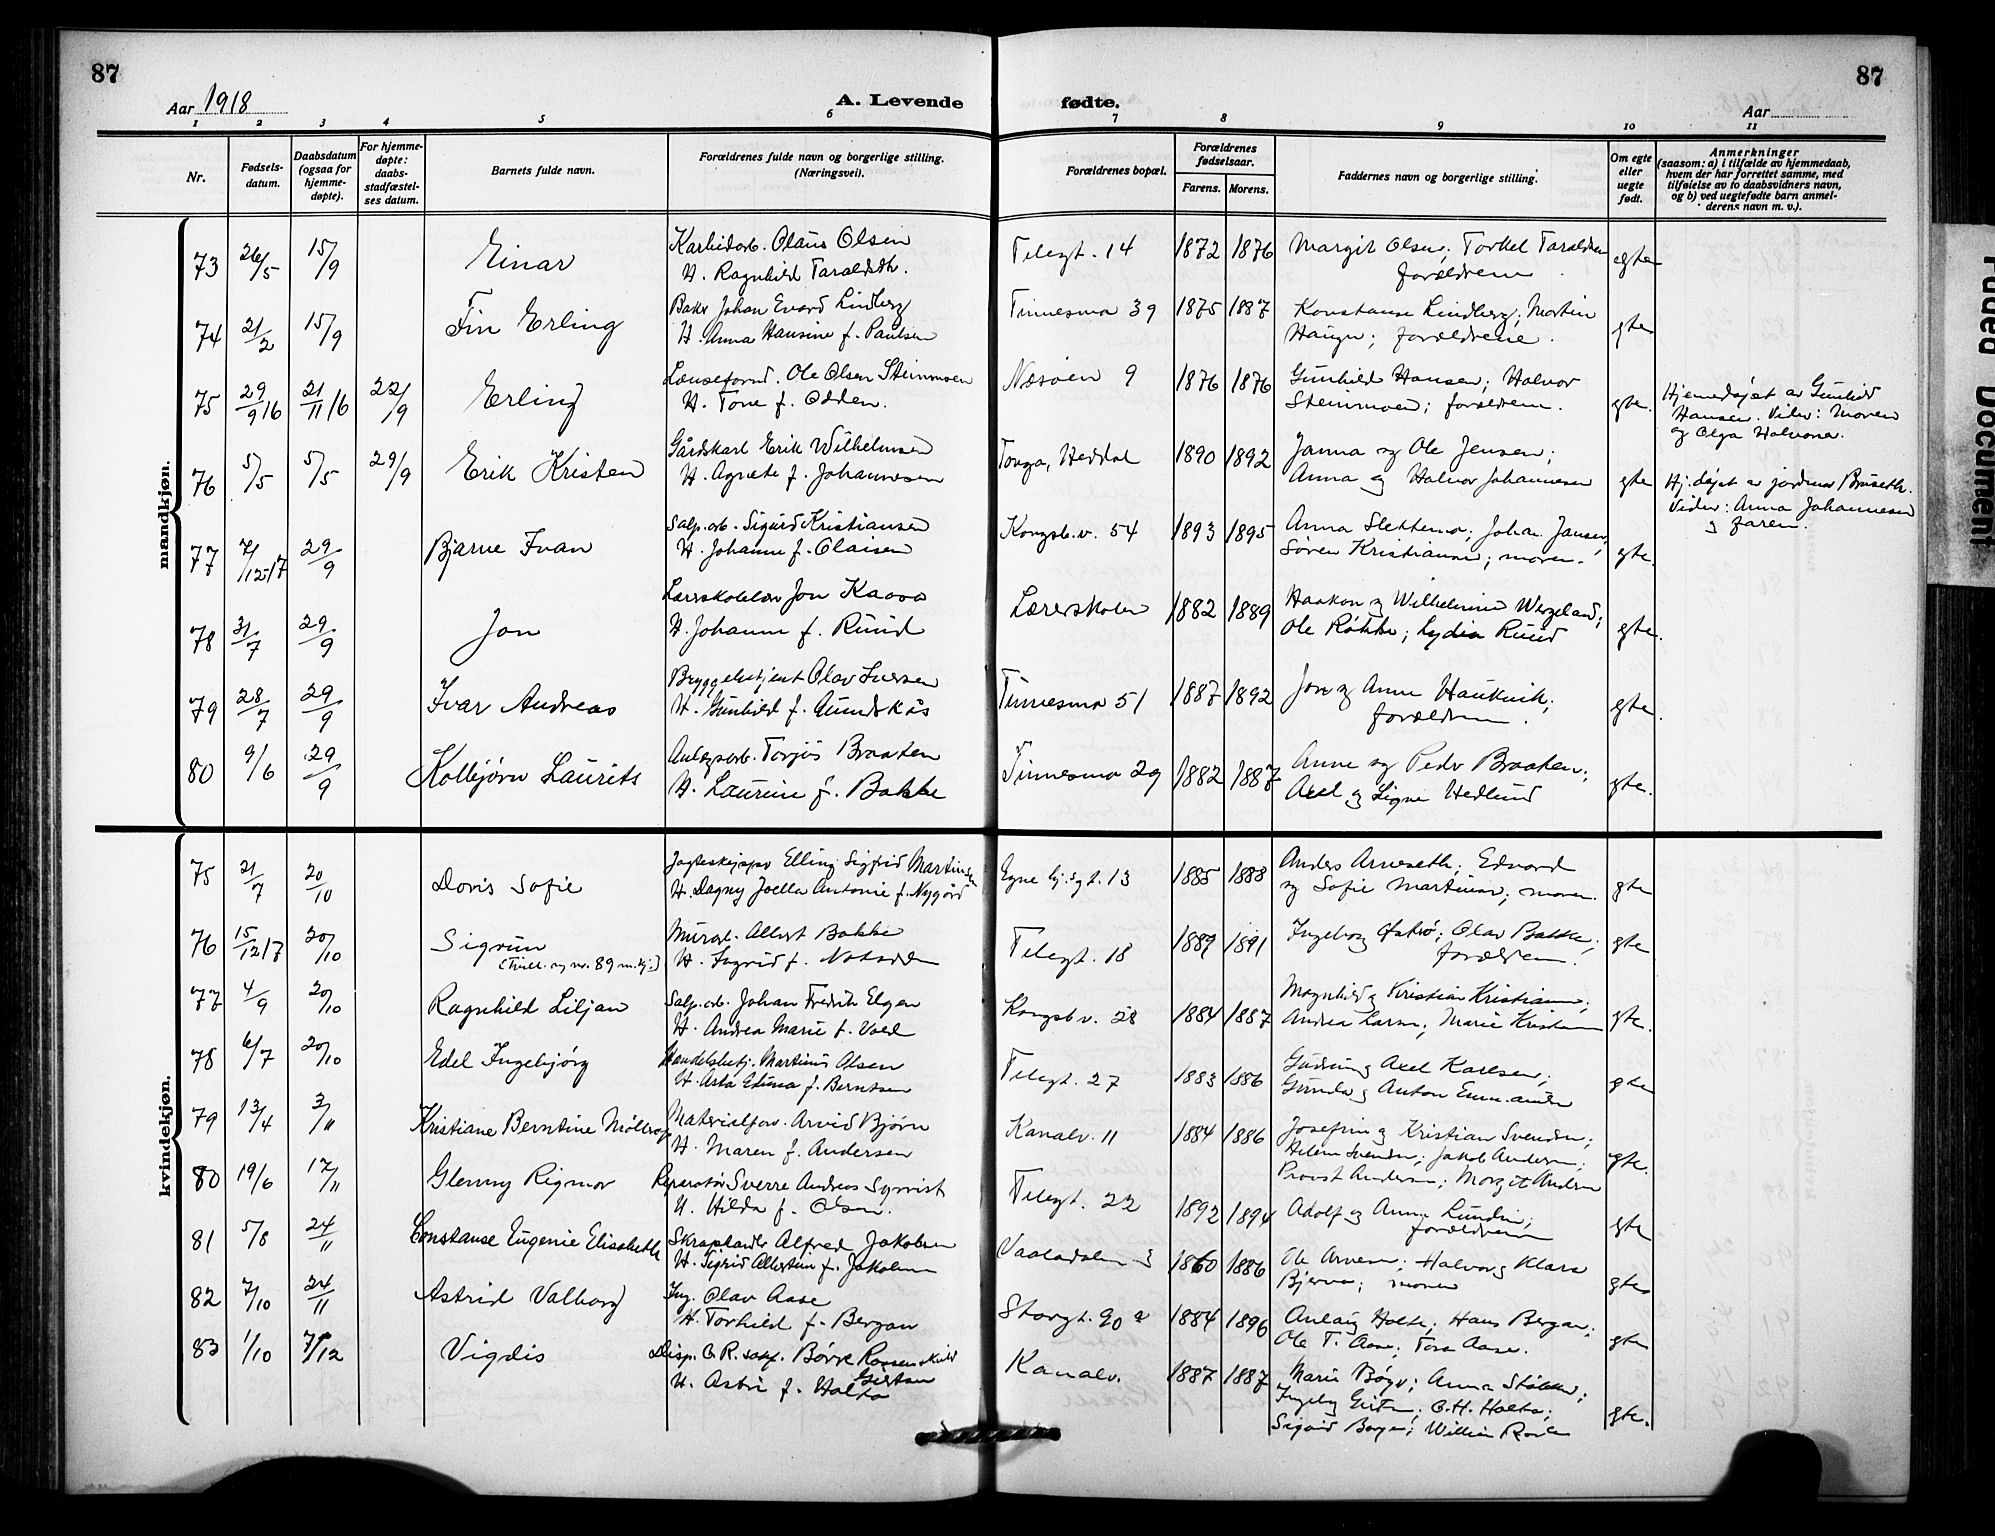 87
87
Aar 1918
A. Levende
fødte.
Aar
1 2 3 4 5 6 7 8 9 10 11
Nr.
Fødsels-
datum.
Daabsdatum
(ogsaa for
hjemme-
døpte).
For hjemme-
døpte:
daabs-
stadfæstel-
ses datum.
Barnets fulde navn.
Forældrenes fulde navn og borgerlige stilling.
(Næringsvei).
Forældrenes bopæl.
Forældrenes
fødselsaar.
Farens. Morens.
Faddernes navn og borgerlige stilling.
Om egte
eller
uegte
født.
Anmerkninger
(saasom: a) i tilfælde av hjemmedaab,
hvem der har forrettet samme, med
tilføielse av to daabsvidners navn,
og b) ved uegtefødte barn anmel-
derens navn m. v.).
mandkjøn.
73 26/5 15/9 Einar Karbidarb. Olaus Olsen Telegt. 14 1872 1876 Margit Olsen; Torkel Taraldsen egte
H. Ragnhild Taraldsdtr. forældrene
74 21/2 15/9 Fin Erling Baker Johan Evard Lindberg Tinnesmo 39 1875 1887 Konstanse Lindberg; Martin
H. Anna Hansine f. Paulsen Haugen; forældrene. gte
75 29/9 16 21/11 16 22/9 Erling Lænseformd. Ole Olsen Steinmoen Næsøen 9 1876 1876 Gunhild Hansen; Halvor
H. Tone f. Odden. Steinmoen; forældrene. gte.
Hjemmedøpt av Gunhild
Hansen. Vidner: Moren
og Olga Halvorsen.
76 5/5 5/5 29/9 Erik Kristen Gårdskarl Erik Wilhelmsen Tonga, Heddal 1890 1892 Janna og Ole Jensen;
H. Agnete f. Johannesen Anna og Halvor Johannesen gte
Hj. døpt av jordmor Bruseth.
Vidner: Anna Johannesen
og faren.
77 7/12-17 29/9 Bjarne Ivan Salp.arb. Sigurd Kristiansen Kongsb.v. 54 1893 1895 Anna Slettemo; Johan Jansen,
H. Johanne f. Olaisen Søren Kristiansen; moren. gte.
78 31/7 29/9 Jon Lærerskolelær Jon Kaasa Lærerskolen 1882 1889 Haakon og Wilhelmine Wergeland;
H. Johanne f. Ruud Ole Røkke; Lydia Ruud gte.
79 28/7 29/9 Ivar Andreas Bryggebetjent Olav Iversen Tinnesmo 51 1887 1892 Jon og Anne Haukvik;
H. Gunhild f. Aundskås forældrene. gte.
80 9/6 29/9 Kolbjørn Laurits Anlegsarb. Torjus Braaten Tinnesmo 29 1882 1887 Anne og Peder Braaten;
H. Laurine f. Bakke Axel og Signe Hedlund gte.
kvindekjøn.
75 21/7 20/10 Doris Sofie Jagteskipper Elling Sigfrid Martinsen Egne hj.sgt. 13 1885 1888 Anders Arneseth; Edvard
H. Dagny Joella Antonie f. Nygård og Sofie Martinsen; moren. gte
76 15/12 17 20/10 Sigrun Murarb. Albert Bakke Telegt. 18 1889 1891 Ingeborg; Olav Bakke; gte
(Tvill. og nr. 89 m.kj.) H. Ingrid f. Notodden forældrene.
77 4/9 20/10 Ragnhild Liljan Salp.arb. Johan Fredrik Elgen Kongsb v. 28 1884 1887 Magnhild og Kristian Kristiansen;
H. Andrea Marie f. Vold Andrea Larsen; Marie Kristiansen gte.
78 6/7 20/10 Edel Ingebjørg Handelsbetj. Martinus Olsen Telegt. 27 1883 1886 Gudrun og Axel Karlsen;
H. Asta Edina f. Berntsen Gunda og Anton Emmanuelsen gte
79 13/4 3/11 Kristiane Berntine Møllrop Materialforv. Arvid Bjørn Kanalv. 11 1884 1886 Josefine og Kristian Svendsen;
H. Maren f. Andersen Helene Svendsen; Jakob Andersen; gte.
Provst Andersen; Margit Andersen
80 19/6 17/11 Glenny Rigmor Reparatør Sverre Andreas Syqvist Telegt. 22 1892 1894 Adolf og Anna Lundin; gte
H. Hilda f. Olsen. forældrene
81 5/8 24/11 Constanse Eugenie Elisabeth Skraphandler Alfred Jakobsen Vaaladalen 3 1860 1886 Ole Arnesen; Halvor og Klara
H. Sigrid Albertine f. Jakobsen Bjerva; moren gte
82 7/10 24/11 Astrid Valborg Ing. Olav Aase Storgt. 90 a 1884 1896 Anlaug Holte; Hans Bergan;
H. Torhild f. Bergan Ole T. Aase; Tora Aase. gte
83 1/10 7/12 Vigdis Disp. Børre Rosenkild Gjertsen Kanalv. 1887 1887 Marie Bøgv; Anna Støkken;
H. Astri f. Holta Ingeborg; O.H. Holta; gte.
Sigurd; William
Faded Document